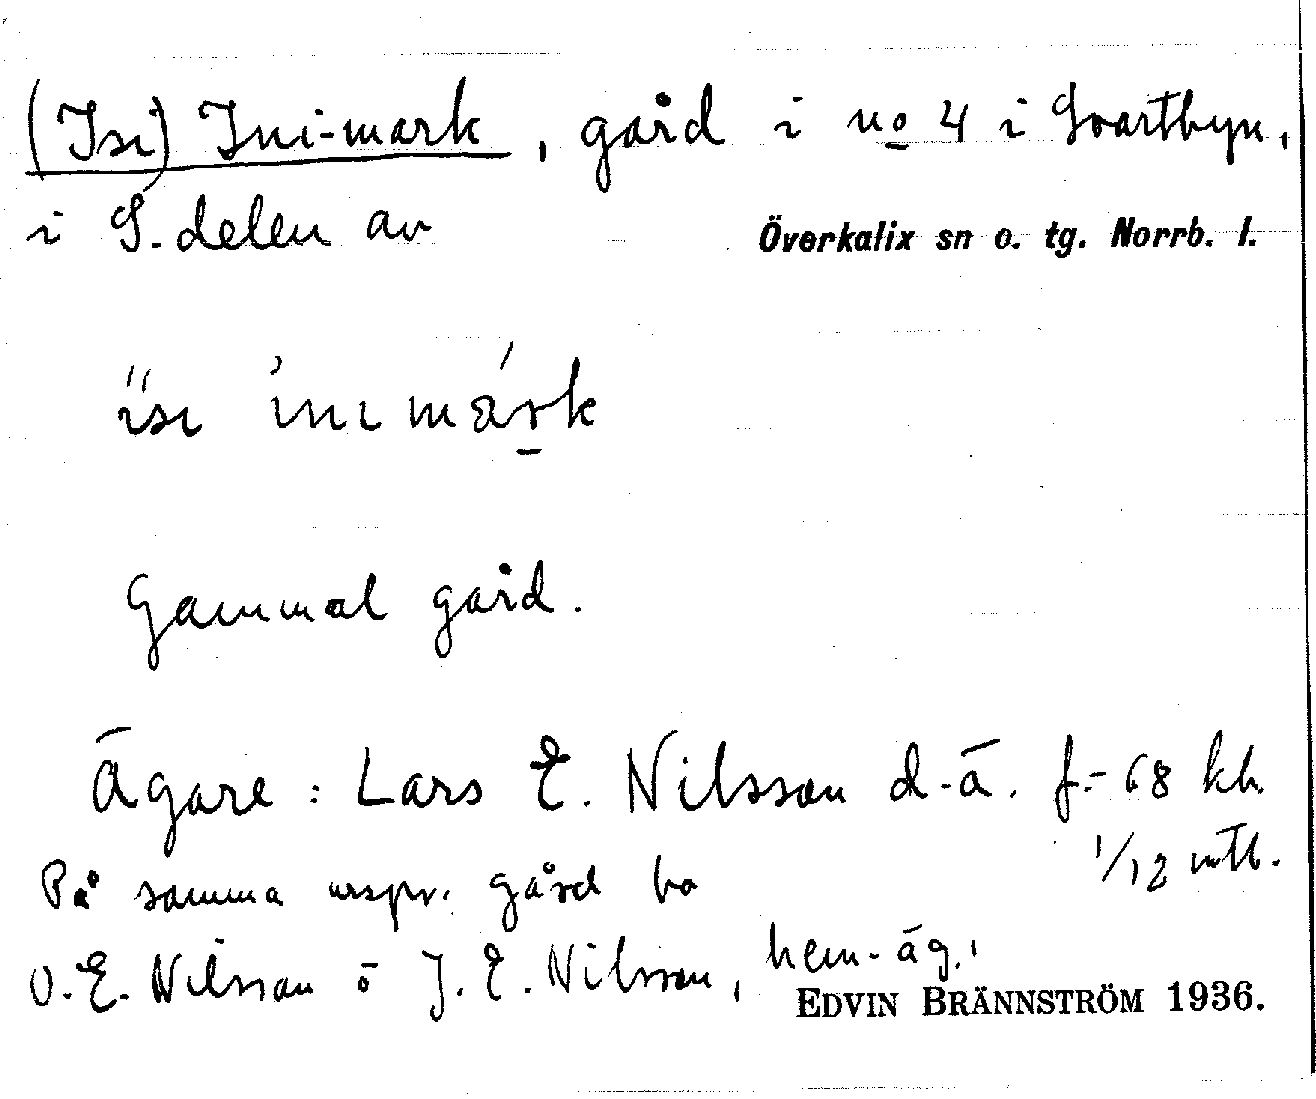 (Isi) Ini-mark, gård i no 4 i Svartbyn,
i S. delen av Överkalix sn o. tg. Norrb. l.
isi inimark
Gammal gård.
Ägare: Lars E. Nilsson d.ä. f.-68 kh.
1/12 mtl.
På samma urspr. gård bo
O.E. Nilsson o J.E. Nilsson, hem.äg.
EDVIN BRÄNNSTRÖM 1936.